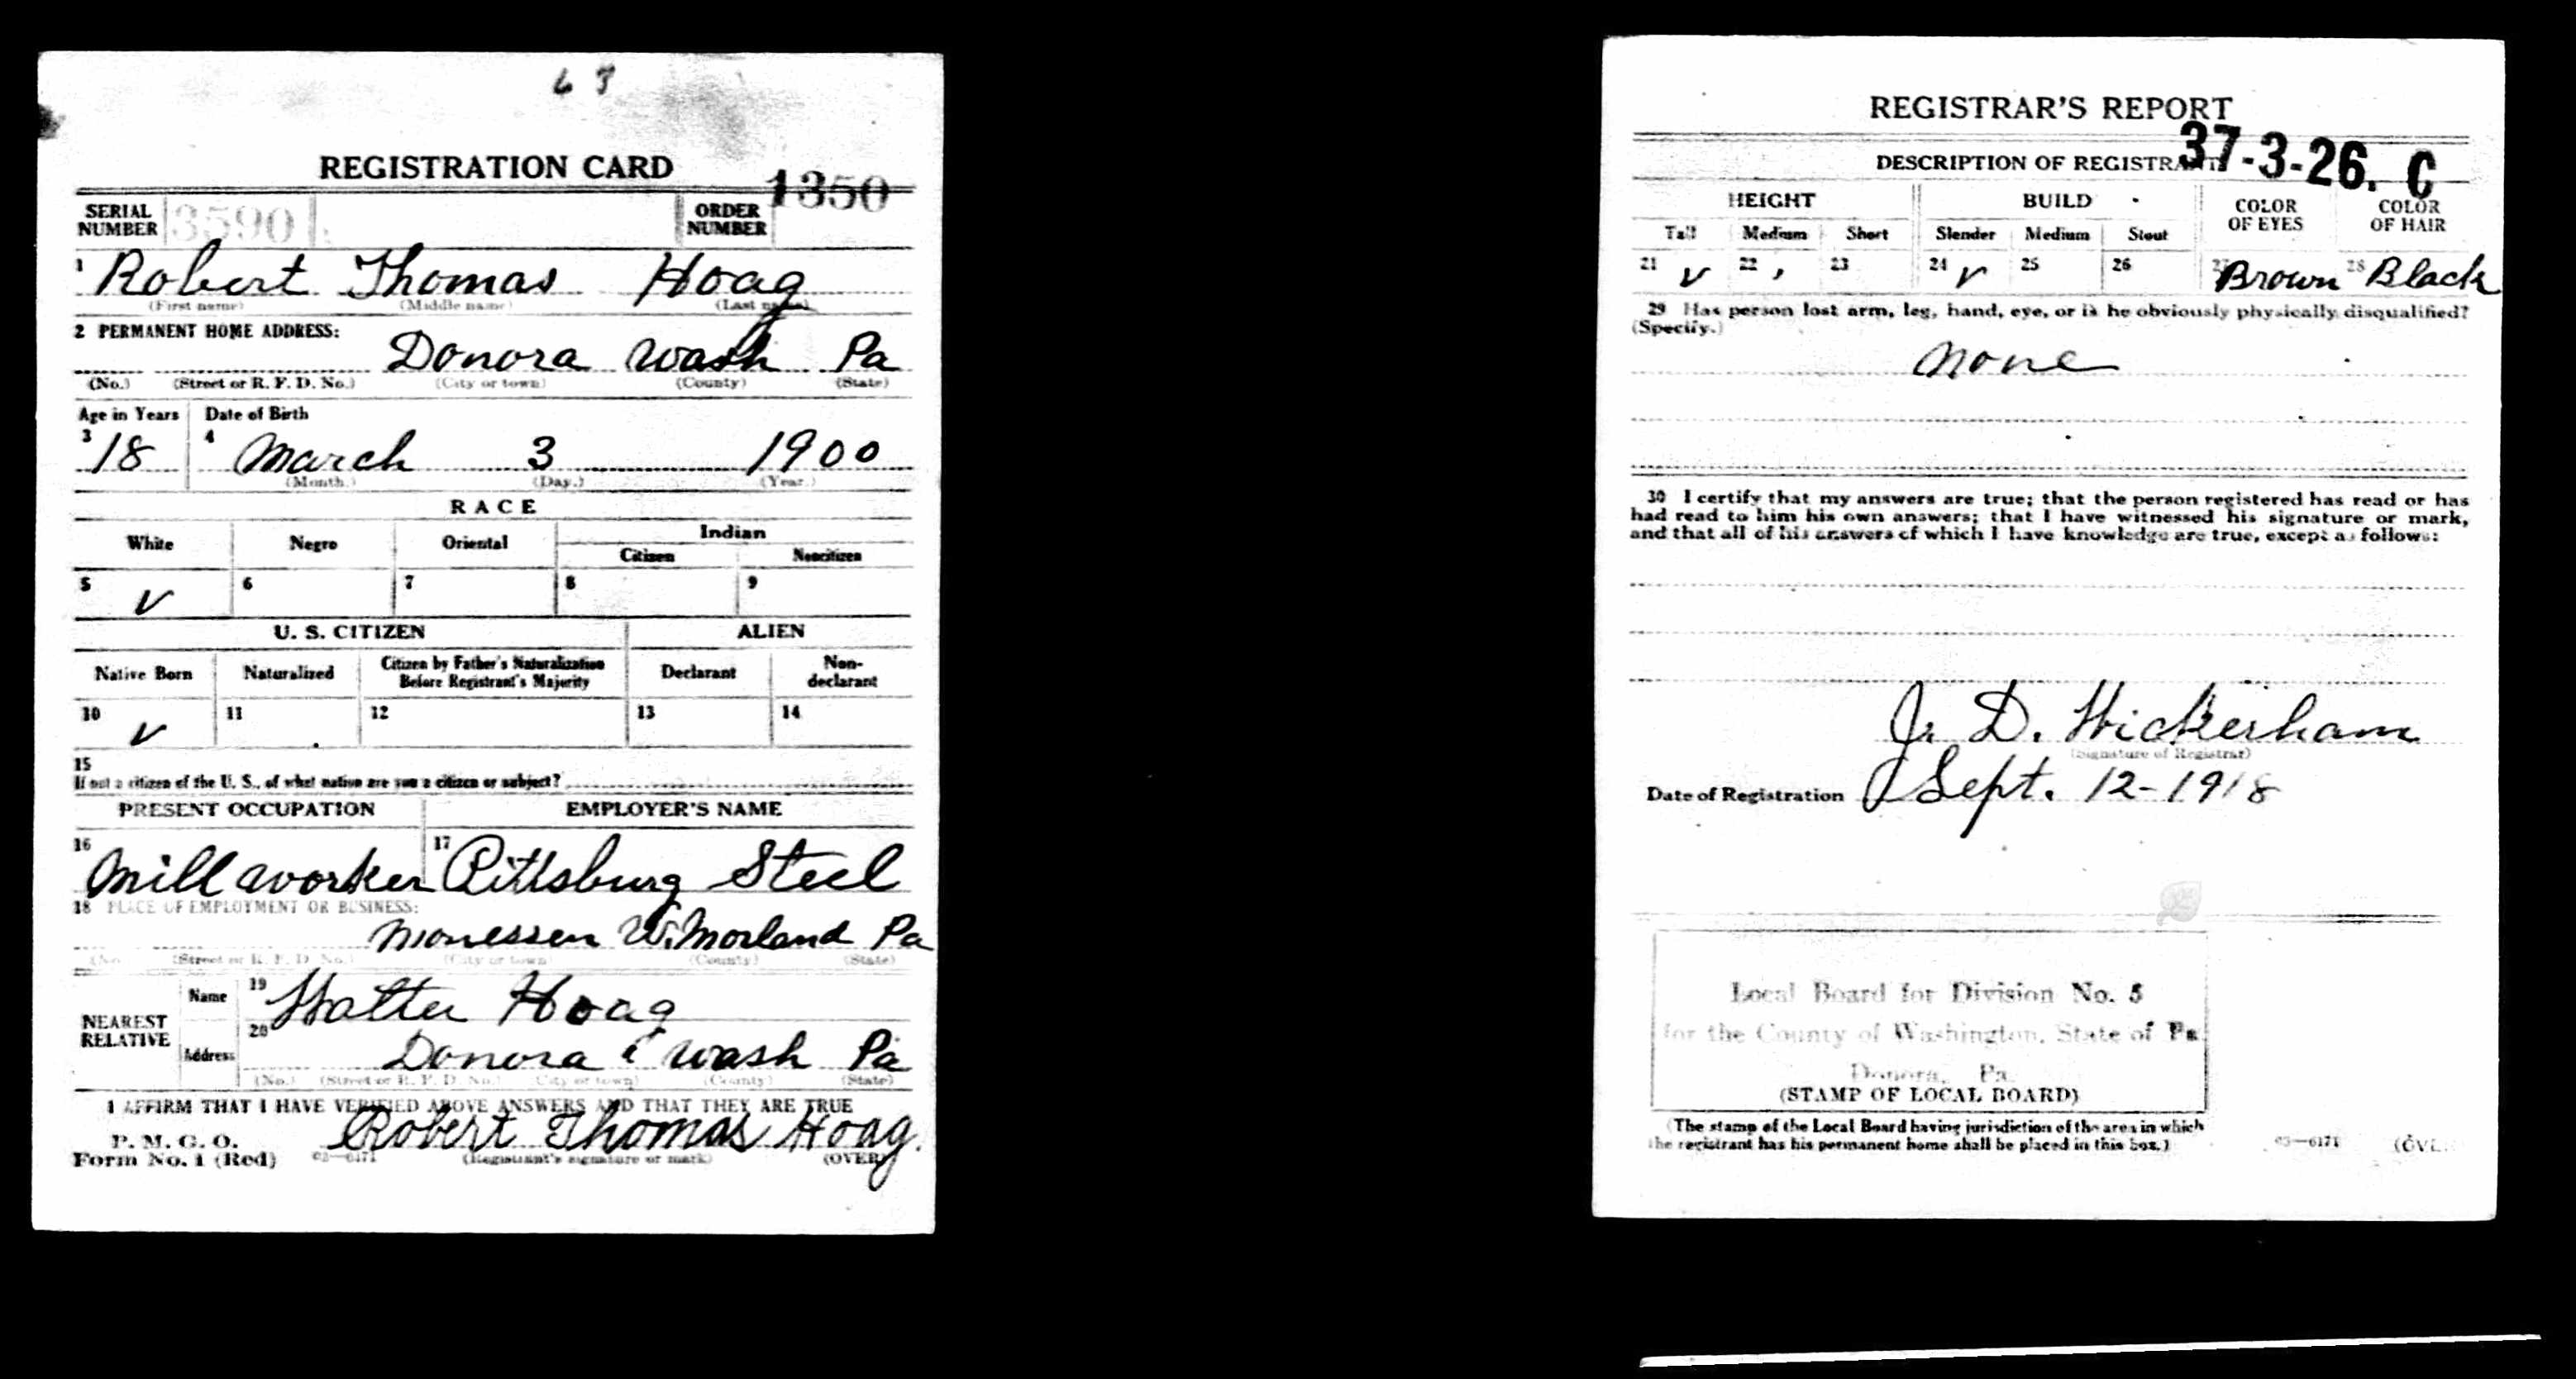 6 3
REGISTRATION CARD
1350
SERIAL NUMBER 3590 ORDER NUMBER
1 Robert Thomas Hoag
(First name) (Middle name) (Last name)
2 PERMANENT HOME ADDRESS:
Donora Wash Pa
(No.) (Street or R. F. D. No.) (City or town) (County) (State)
Age in Years Date of Birth
3 18 4 March 3 1900
(Month.) (Day.) (Year.)
RACE
White Negro Oriental Indian
Citizen Noncitizen
5 ✓ 6 7 8 9
U. S. CITIZEN ALIEN
Native Born Naturalized Citizen by Father's Naturalization Before Registrant's Majority Declarant Non-declarant
10 ✓ 11 12 13 14
15
If not a citizen of the U. S., of what nation are you a citizen or subject?
PRESENT OCCUPATION EMPLOYER'S NAME
16 Mill worker 17 Pittsburg Steel
18 PLACE OF EMPLOYMENT OR BUSINESS:
Monessen W.Morland Pa
(No.) (Street or R. F. D. No.) (City or town) (County) (State)
NEAREST RELATIVE Name 19 Walter Hoag
Address 20 Donora Wash Pa
(No.) (Street or R. F. D. No.) (City or town) (County) (State)
I AFFIRM THAT I HAVE VERIFIED ABOVE ANSWERS AND THAT THEY ARE TRUE
P. M. G. O.
Form No. 1 (Red) 03—6171 Robert Thomas Hoag.
(Registrant's signature or mark) (OVER)
REGISTRAR'S REPORT
37-3-26. C
DESCRIPTION OF REGISTRANT
HEIGHT BUILD COLOR OF EYES COLOR OF HAIR
Tall Medium Short Slender Medium Stout
21 ✓ 22 23 24 ✓ 25 26 27 Brown 28 Black
29 Has person lost arm, leg, hand, eye, or is he obviously physically disqualified?
(Specify.)
None
30 I certify that my answers are true; that the person registered has read or has
had read to him his own answers; that I have witnessed his signature or mark,
and that all of his answers of which I have knowledge are true, except as follows:
J. D. Wickerham
(Signature of Registrar)
Date of Registration Sept. 12-1918
Local Board for Division No. 5
for the County of Washington, State of Pa.
Donora, Pa.
(STAMP OF LOCAL BOARD)
(The stamp of the Local Board having jurisdiction of the area in which
the registrant has his permanent home shall be placed in this box.)
03—6171 (OVER)